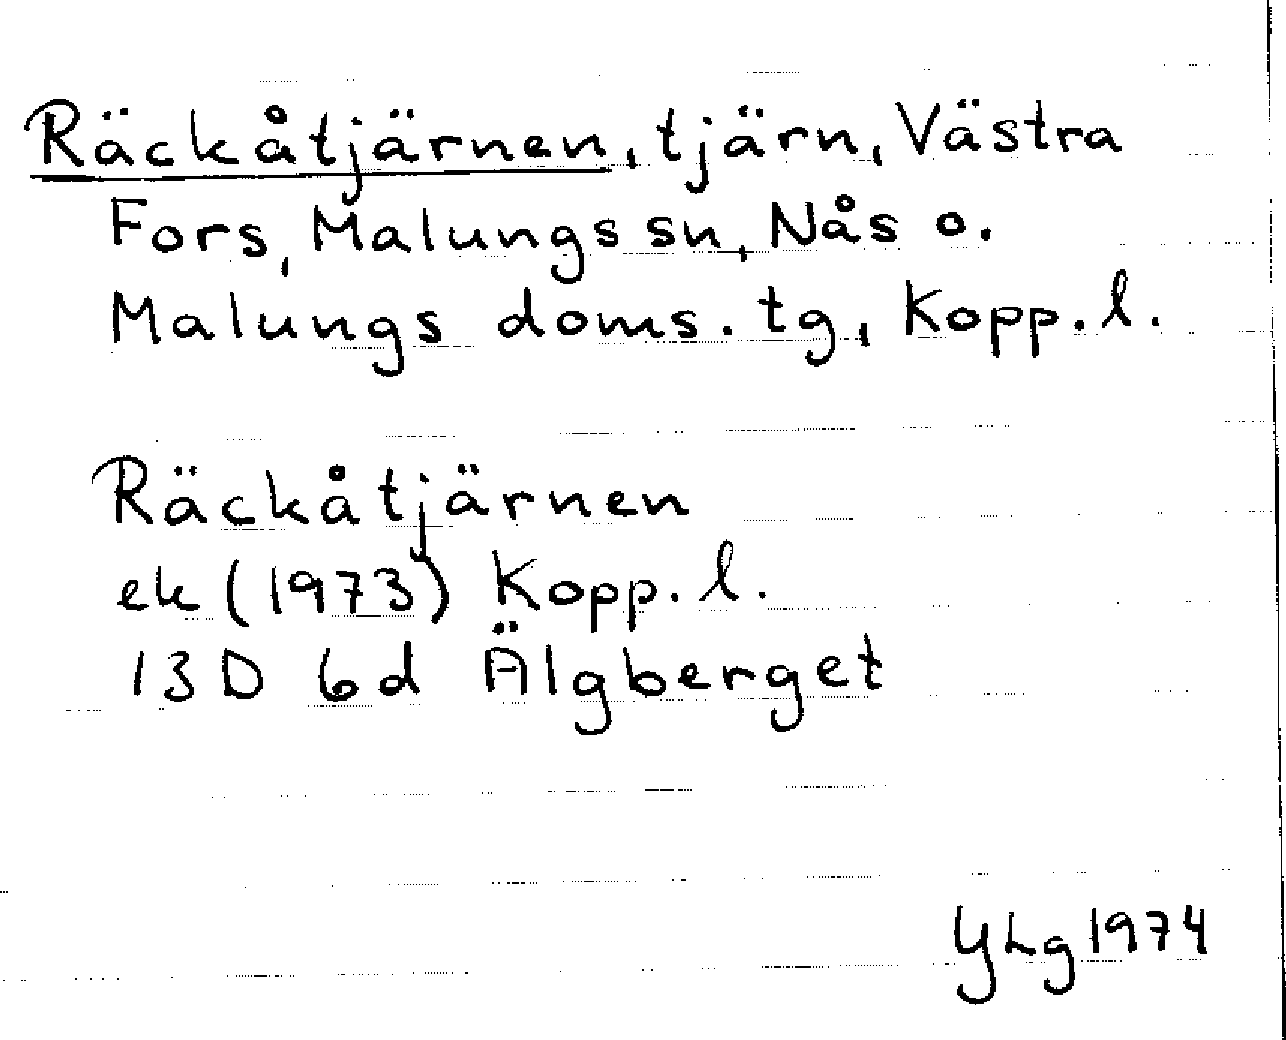 Räckåtjärnen, tjärn, Västra
Fors, Malungs sn, Nås o.
Malungs doms. tg, Kopp. l.
Räckåtjärnen
ek (1973) Kopp. l.
13D 6d Älgberget
YLg 1974